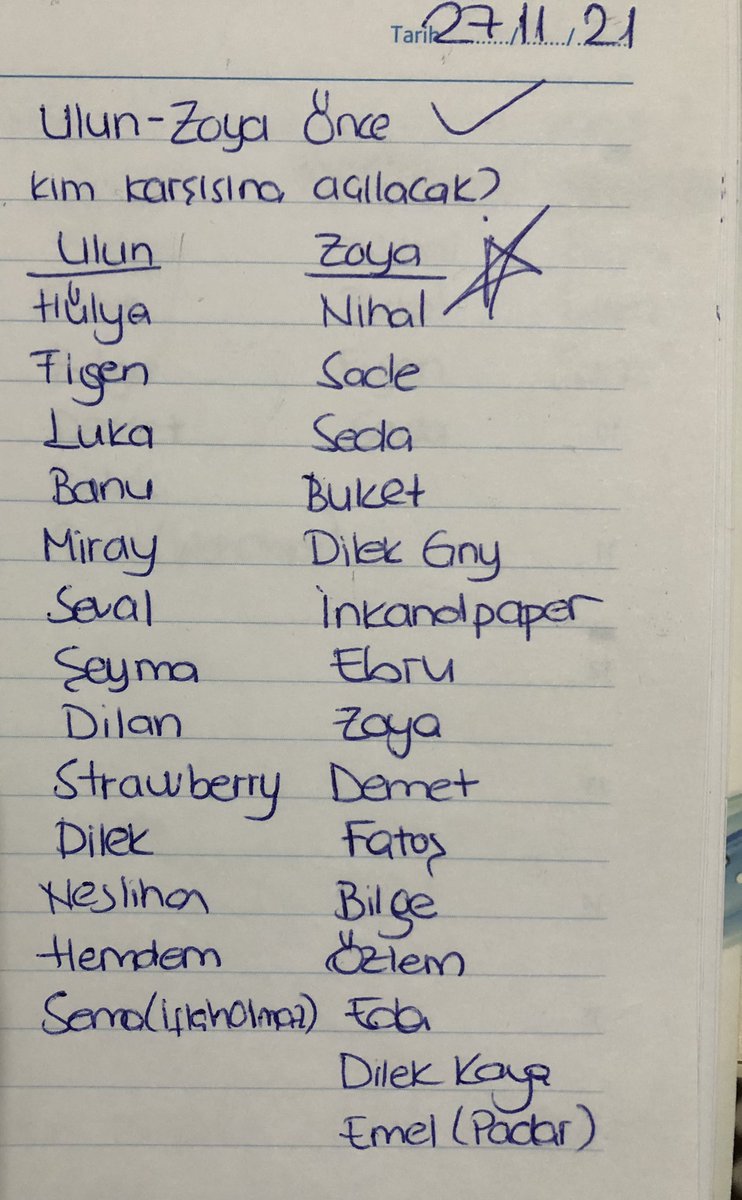 Tarih 27/11/21
Ulun-Zoya Önce
kim karşısına açılacak?
Ulun Zoya
Hülya Nihal
Figen Sade
Luka Seda
Banu Buket
Miray Dilek Gny
Seval İnkandpaper
Şeyma Ebru
Dilan Zoya
Strawberry Demet
Dilek Fatoş
Neslihan Bilge
Hemdem Özlem
Sema (iflaholmaz) Eda
Dilek Kaya
Emel (Padar)